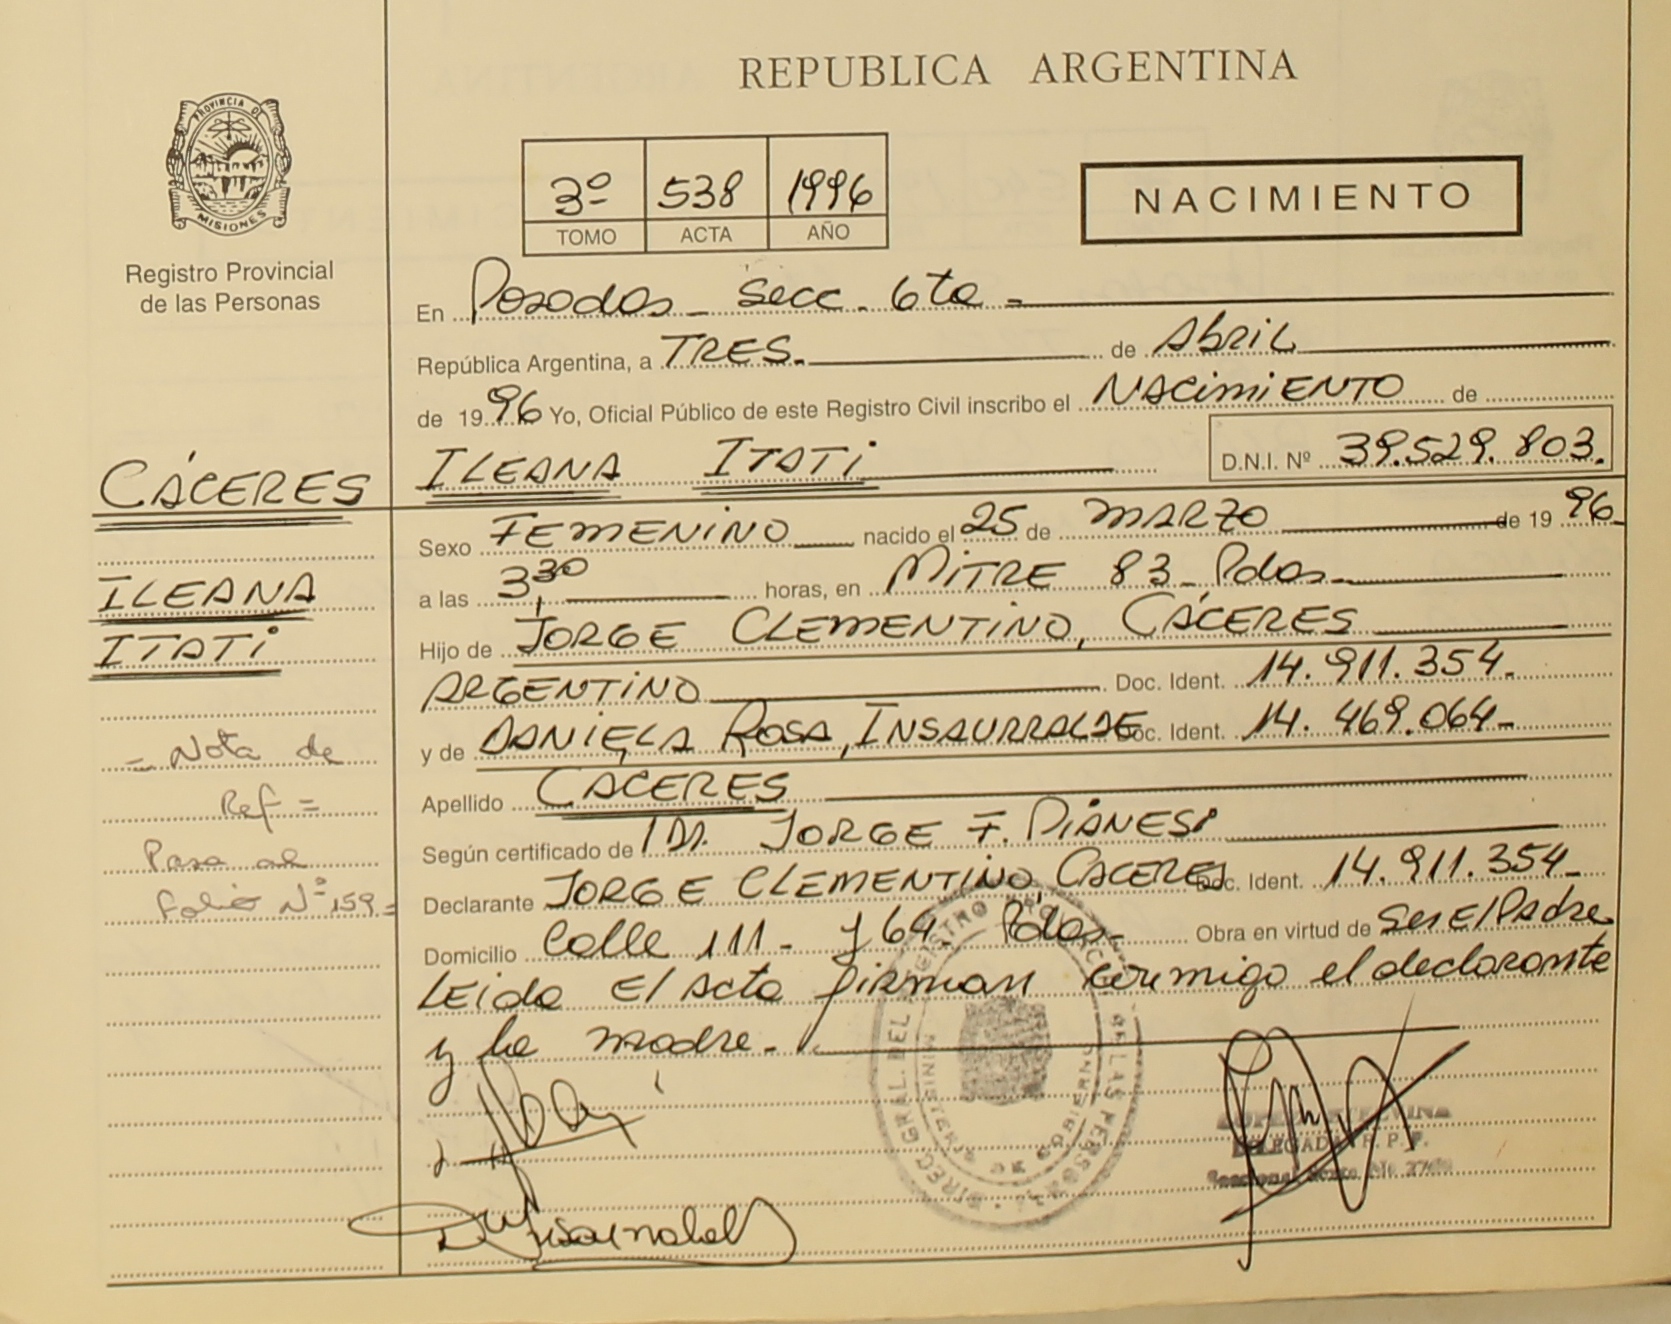 REPUBLICA ARGENTINA
PROVINCIA DE
MISIONES
Registro Provincial
de las Personas
3º 538 1996
TOMO ACTA AÑO
NACIMIENTO
En Posadas - Secc. 6ta -
República Argentina, a TRES. de Abril
de 1996 Yo, Oficial Público de este Registro Civil inscribo el NACIMIENTO de
CÁCERES ILEANA ITATI D.N.I. Nº 39.529.803.
Sexo FEMENINO nacido el 25 de MARZO de 1996
ILEANA
ITATI
a las 3,30 horas, en MITRE 83 - Pdas.
Hijo de JORGE CLEMENTINO, CÁCERES
ARGENTINO Doc. Ident. 14.911.354.
y de DANIELA ROSA, INSAURRALDE Doc. Ident. 14.469.064-
- Nota de
Ref =
Pasa al
Folio Nº 159=
Apellido CACERES
Según certificado de Dr. JORGE F. DIANESI
Declarante JORGE CLEMENTINO CACERES Doc. Ident. 14.911.354-
Domicilio Calle 111 - y 64 - Pdas - Obra en virtud de Ser El Padre
Leida El Acta firman conmigo el declarante
y la madre.
DIREC. GRAL. DEL REGISTRO DE LAS PERSONAS
MINISTERIO DE GOBIERNO
DELEGADA R. P. P.
Seccional Sexta